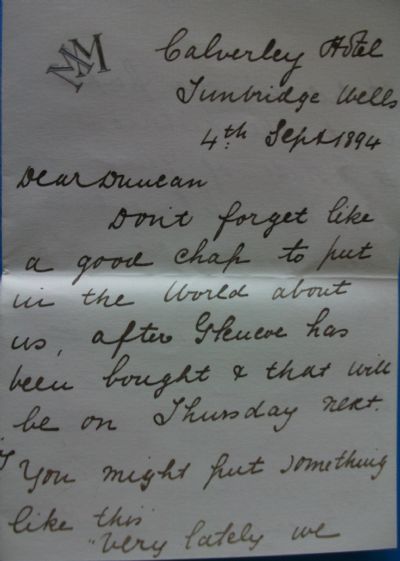 MM
Calverley Hotel
Tunbridge Wells
4th Sept 1894
Dear Duncan
Don't forget like
a good chap to put
in the World about
us, after Glencoe has
been bought & that will
be on Thursday next.
You might put something
like this
"Very lately we